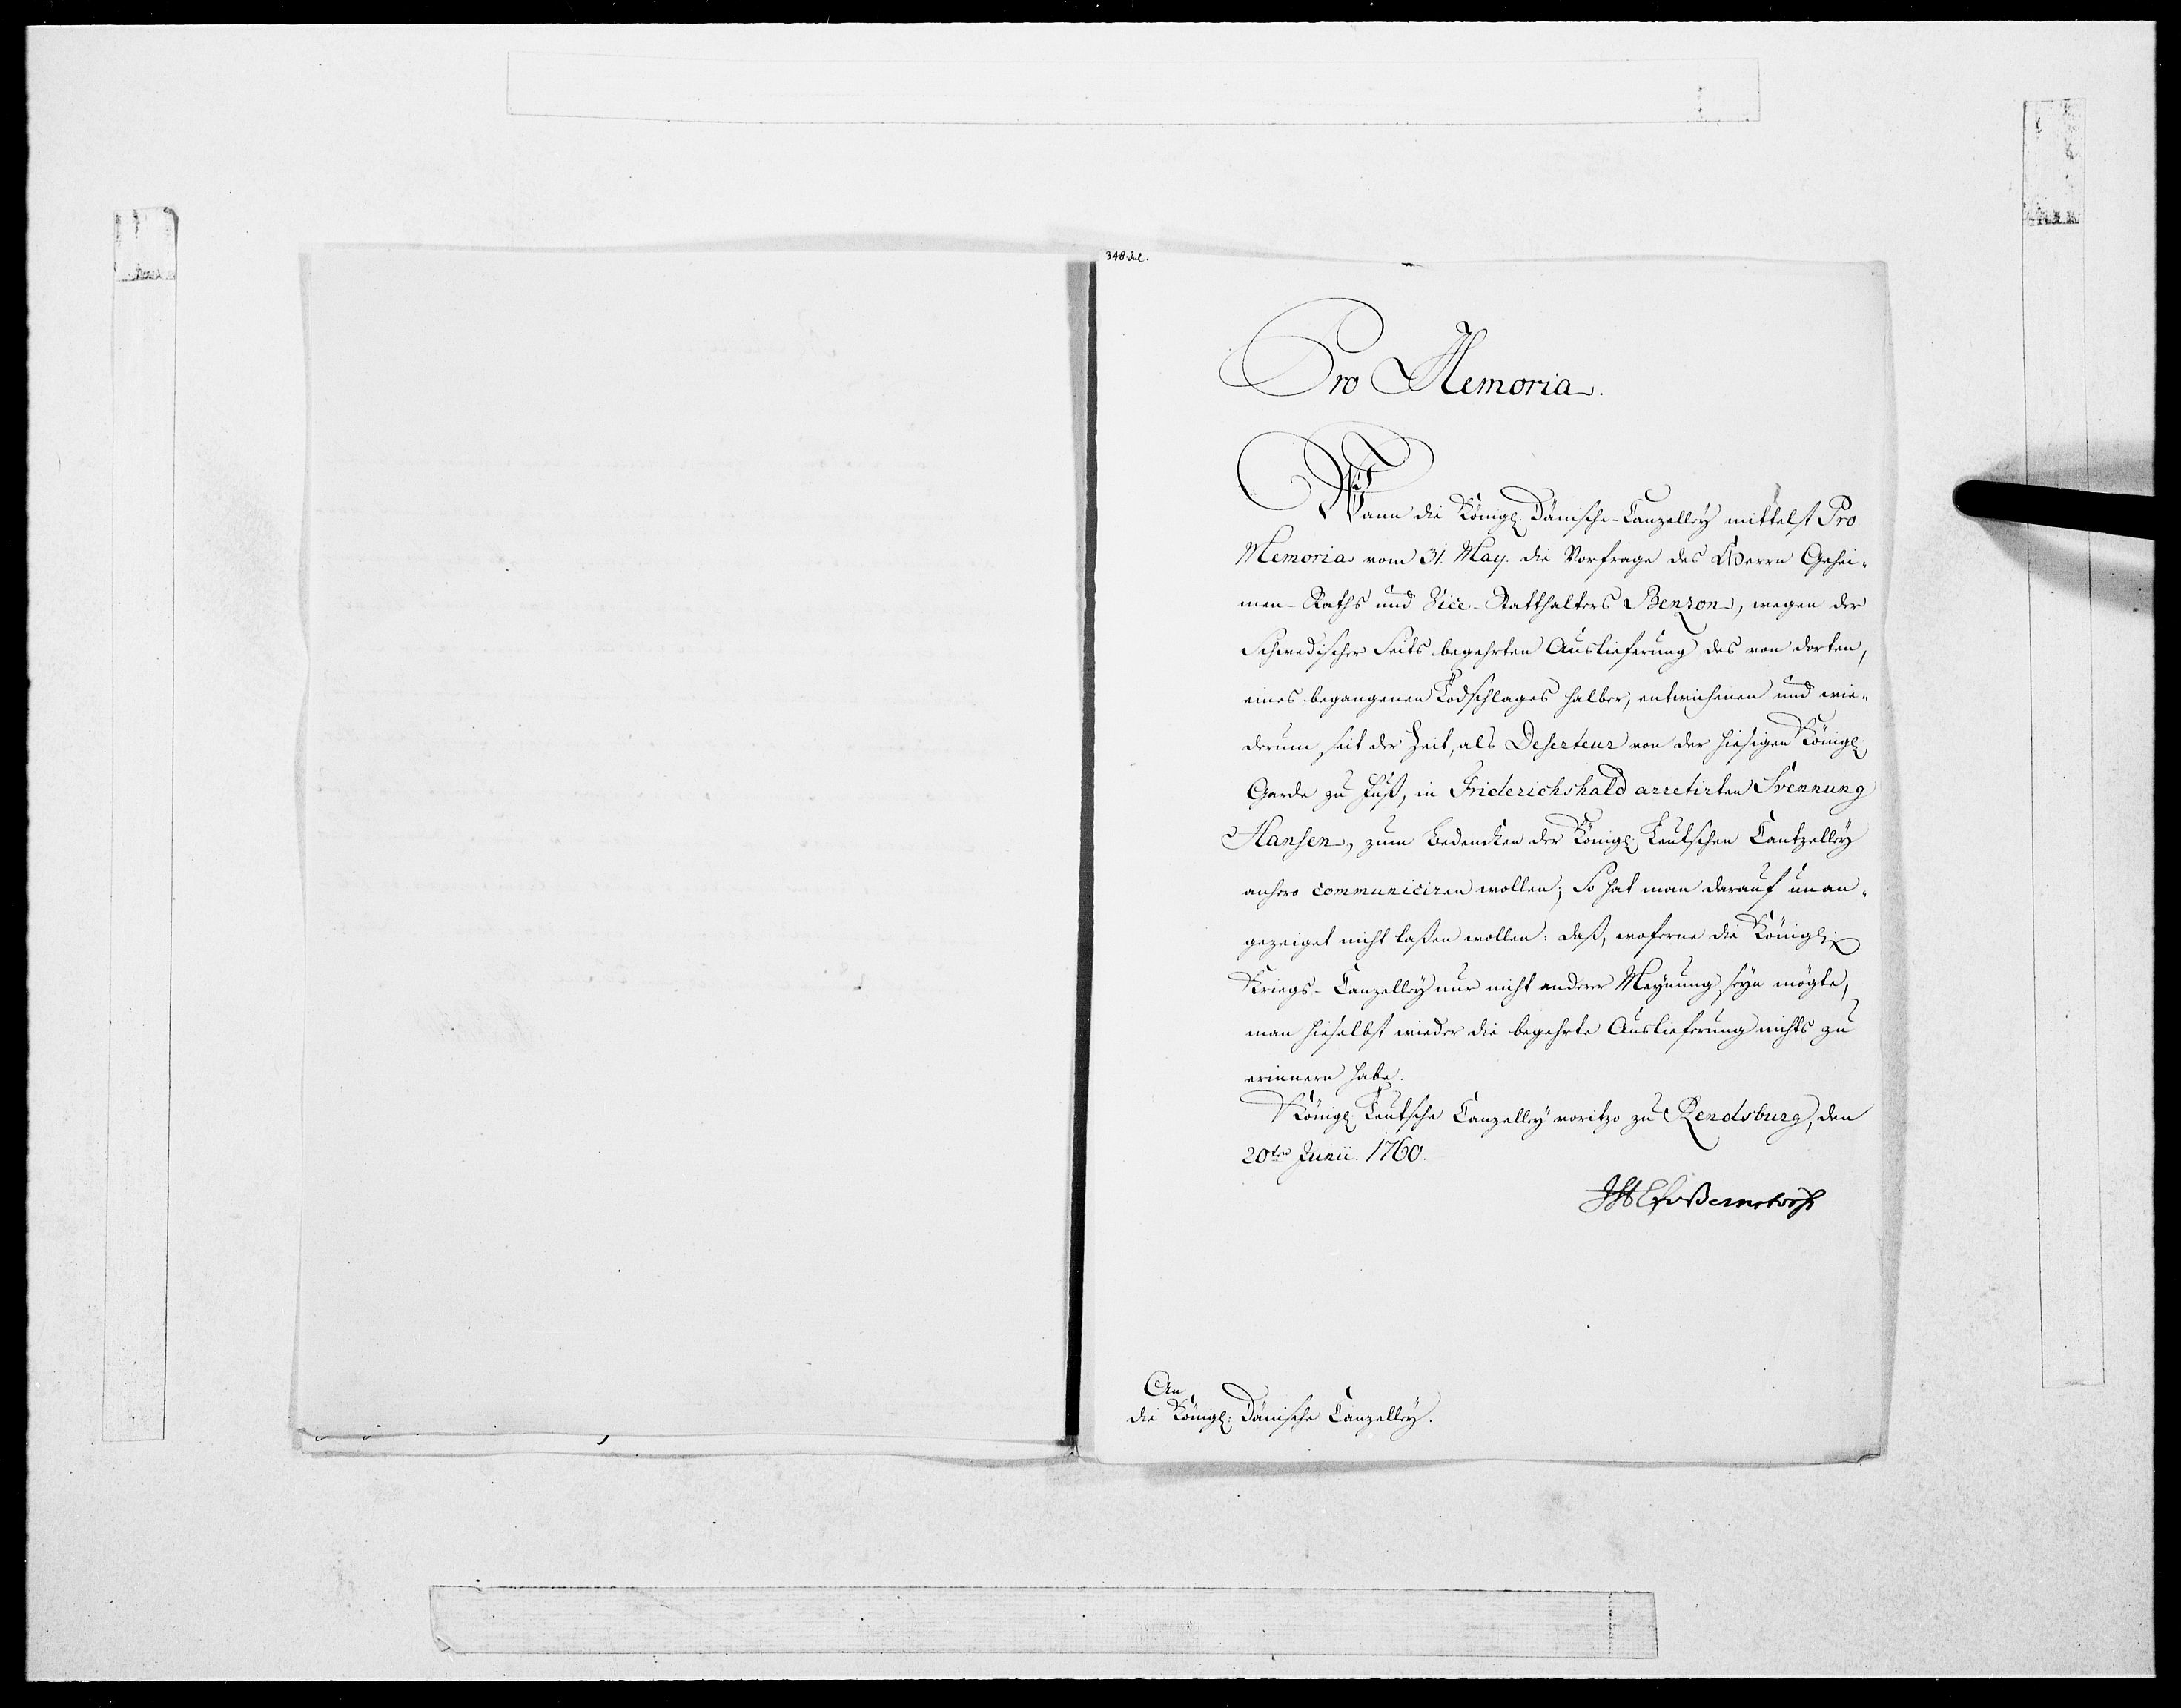 Pro Memoria.
Wann die Königl. Dänische-Canzelley mittelst Pro
Memoria vom 31. May. die Vorfrage des Herrn Gehei-
men-Raths und Vice-Statthalters Benzon, wegen der
Schwedischer Seits begehrten Auslieferung des von dorten,
eines begangenen Todschlages halber, entwichenen und wie-
derum seit der Zeit, als Deserteur von der hiesigen Königl.
Garde zu Fuß, in Friderichshald arretirten Svennung
Hansen, zum Bedencken der Königl. Teutschen Cantzelley
anhero communiciren wollen; So hat man darauf unan-
gezeiget nicht laßen wollen: daß, woferne die Königl.
Kriegs-Canzelley nur nicht anderer Meynung seyn mögte,
man hieselbst wieder die begehrte Auslieferung nichts zu
erinnern habe.
Königl. Teutsche Canzelley voritzo zu Rendsburg, den
20ten Junii. 1760.
JHEfrvBernstorff
An
die Königl. Dänische Canzelley.